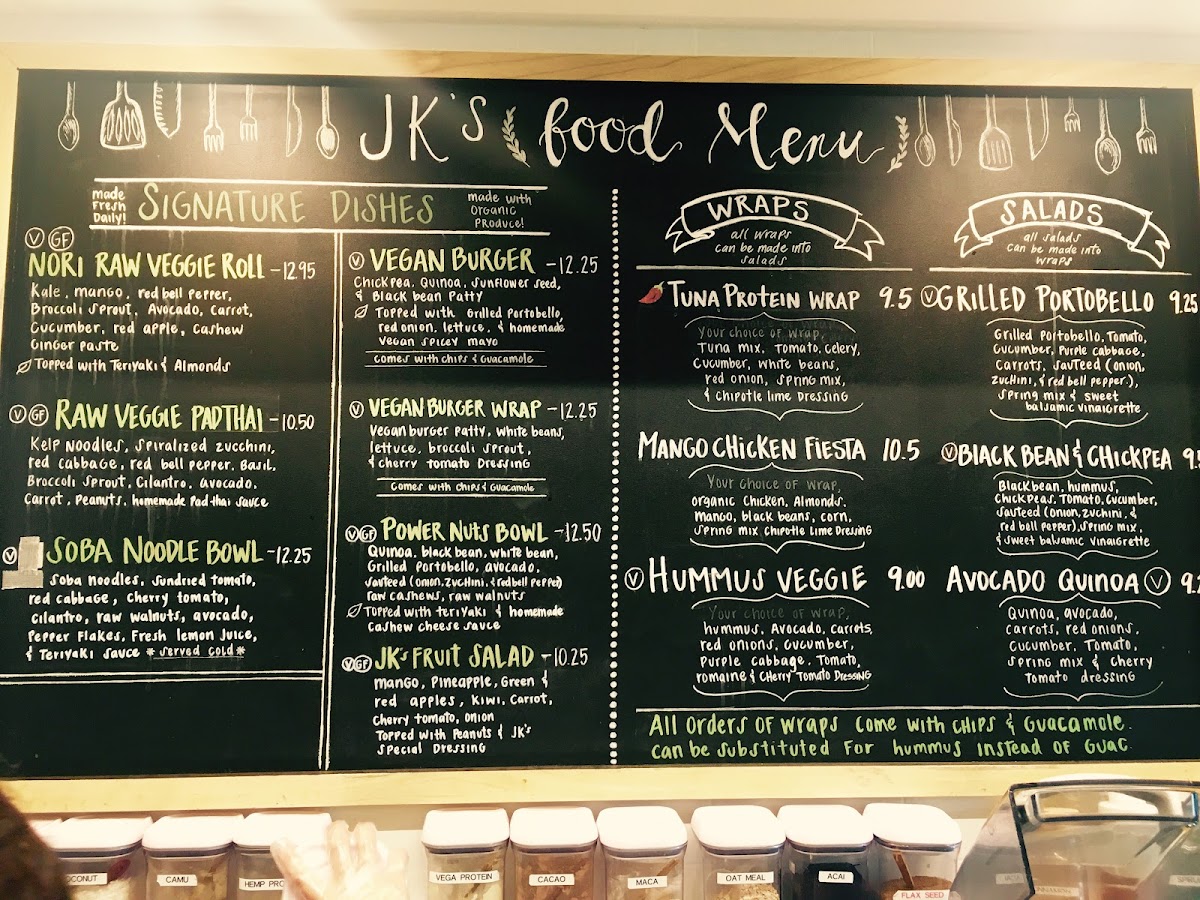 JK's food Menu
made Fresh Daily!
SIGNATURE DISHES
made with Organic Produce!
V GF
NORI RAW VEGGIE ROLL - 12.95
Kale, mango, red bell pepper,
Broccoli sprout, Avocado, Carrot,
Cucumber, red apple, cashew
Ginger paste
Topped with Teriyaki & Almonds
V GF RAW VEGGIE PADTHAI - 10.50
Kelp Noodles, spiralized zucchini,
red cabbage, red bell pepper, Basil,
Broccoli Sprout, Cilantro, avocado,
Carrot, Peanuts, homemade Pad thai sauce
V SOBA NOODLE BOWL - 12.25
Soba noodles, sundried tomato,
red cabbage, cherry tomato,
cilantro, raw walnuts, avocado,
Pepper Flakes, Fresh lemon Juice,
& Teriyaki sauce *served cold*
V VEGAN BURGER - 12.25
Chickpea, Quinoa, Sunflower seed,
& Black bean Patty
Topped with Grilled Portobello,
red onion, lettuce, & homemade
vegan spicey mayo
Comes with chips & Guacamole
V VEGAN BURGER WRAP - 12.25
Vegan burger patty, white beans,
lettuce, broccoli sprout,
& cherry tomato Dressing
Comes with chips & Guacamole
V GF POWER NUTS BOWL - 12.50
Quinoa, black bean, white bean,
Grilled Portobello, avocado,
sauteed (onion, zuchini, & red bell pepper)
raw cashews, raw walnuts
Topped with teriyaki & homemade
Cashew cheese sauce
V GF JK's FRUIT SALAD - 10.25
mango, Pineapple, Green &
red apples, kiwi, Carrot,
Cherry tomato, onion
Topped with Peanuts & JK's
Special Dressing
WRAPS
all wraps
can be made into
salads
TUNA PROTEIN WRAP 9.5
Your choice of wrap,
Tuna mix, Tomato, Celery,
Cucumber, white beans,
red onion, spring mix,
& chipotle lime Dressing
MANGO CHICKEN FIESTA 10.5
Your choice of wrap,
organic chicken, Almonds,
Mango, black beans, corn,
spring mix chipotle Lime Dressing
V HUMMUS VEGGIE 9.00
Your choice of wrap,
hummus, Avocado, Carrots,
red onions, cucumber,
Purple cabbage, Tomato,
romaine & Cherry Tomato Dressing
SALADS
all salads
can be made into
wraps
V GRILLED PORTOBELLO 9.25
Grilled Portobello, Tomato,
Cucumber, Purple cabbage,
Carrots, sauteed (onion,
zuchini, & red bell pepper),
spring mix & sweet
balsamic vinaigrette
V BLACK BEAN & CHICKPEA
Black bean, hummus,
Chickpeas, Tomato, Cucumber,
sauteed (onion, zuchini, &
red bell pepper), spring mix,
& sweet balsamic vinaigrette
AVOCADO QUINOA V
Quinoa, avocado,
carrots, red onions,
Cucumber, Tomato,
spring mix & cherry
Tomato dressing
All orders of wraps come with chips & Guacamole.
can be substituted for hummus instead of Guac.
CAMU
VEGA PROTEIN
CACAO
MACA
OAT MEAL
ACAI
FLAX SEED